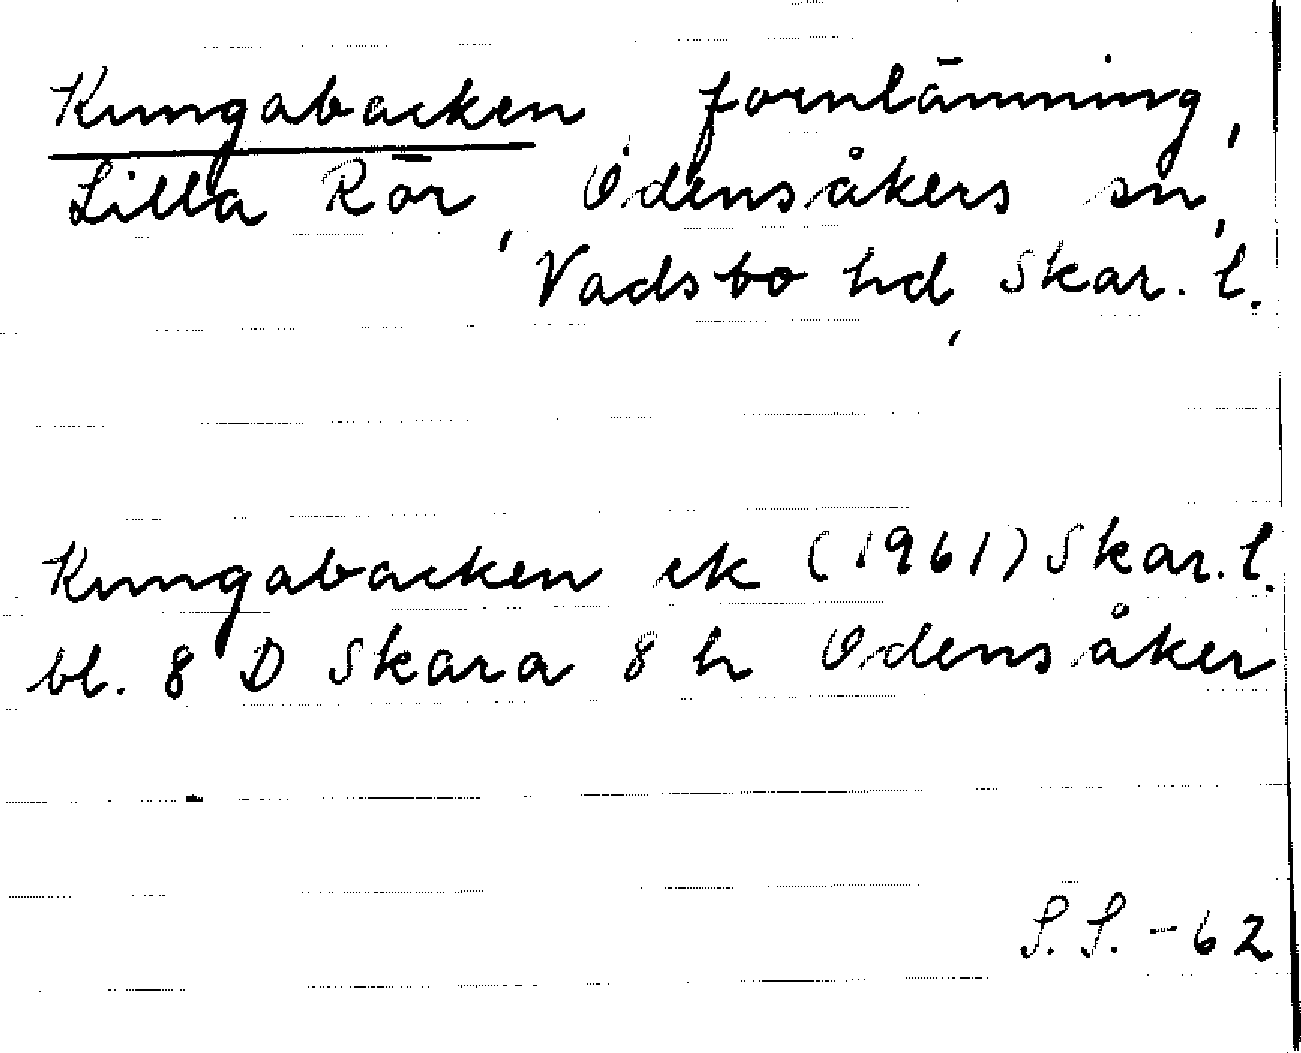 Kungabacken fornlämning,
Lilla Rör, Odensåkers sn,
Vadsbo hd, Skar. l.
Kungabacken ek (1961) Skar. l.
bl. 8 D Skara 8 h Odensåker
S. S. - 62